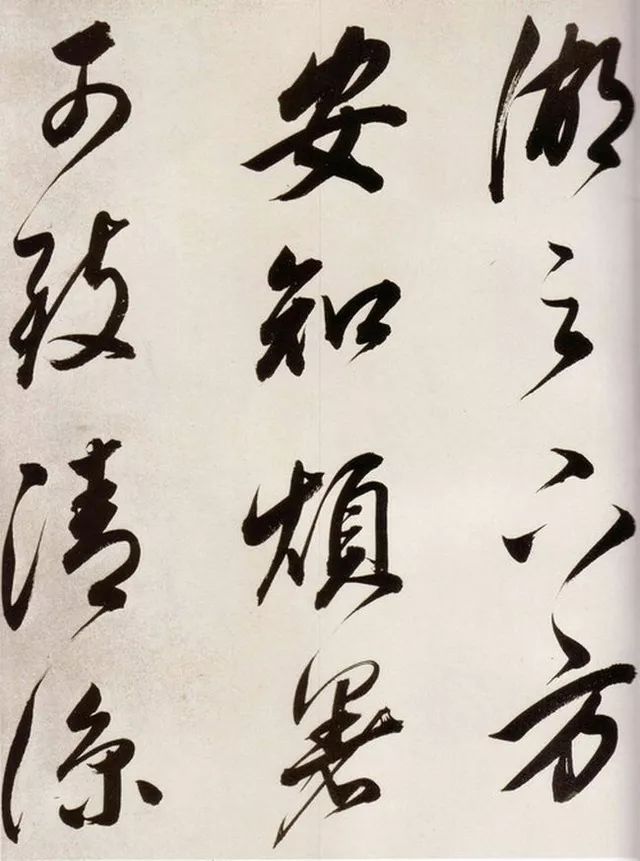 湖之六方
安知煩暑
可致清涼